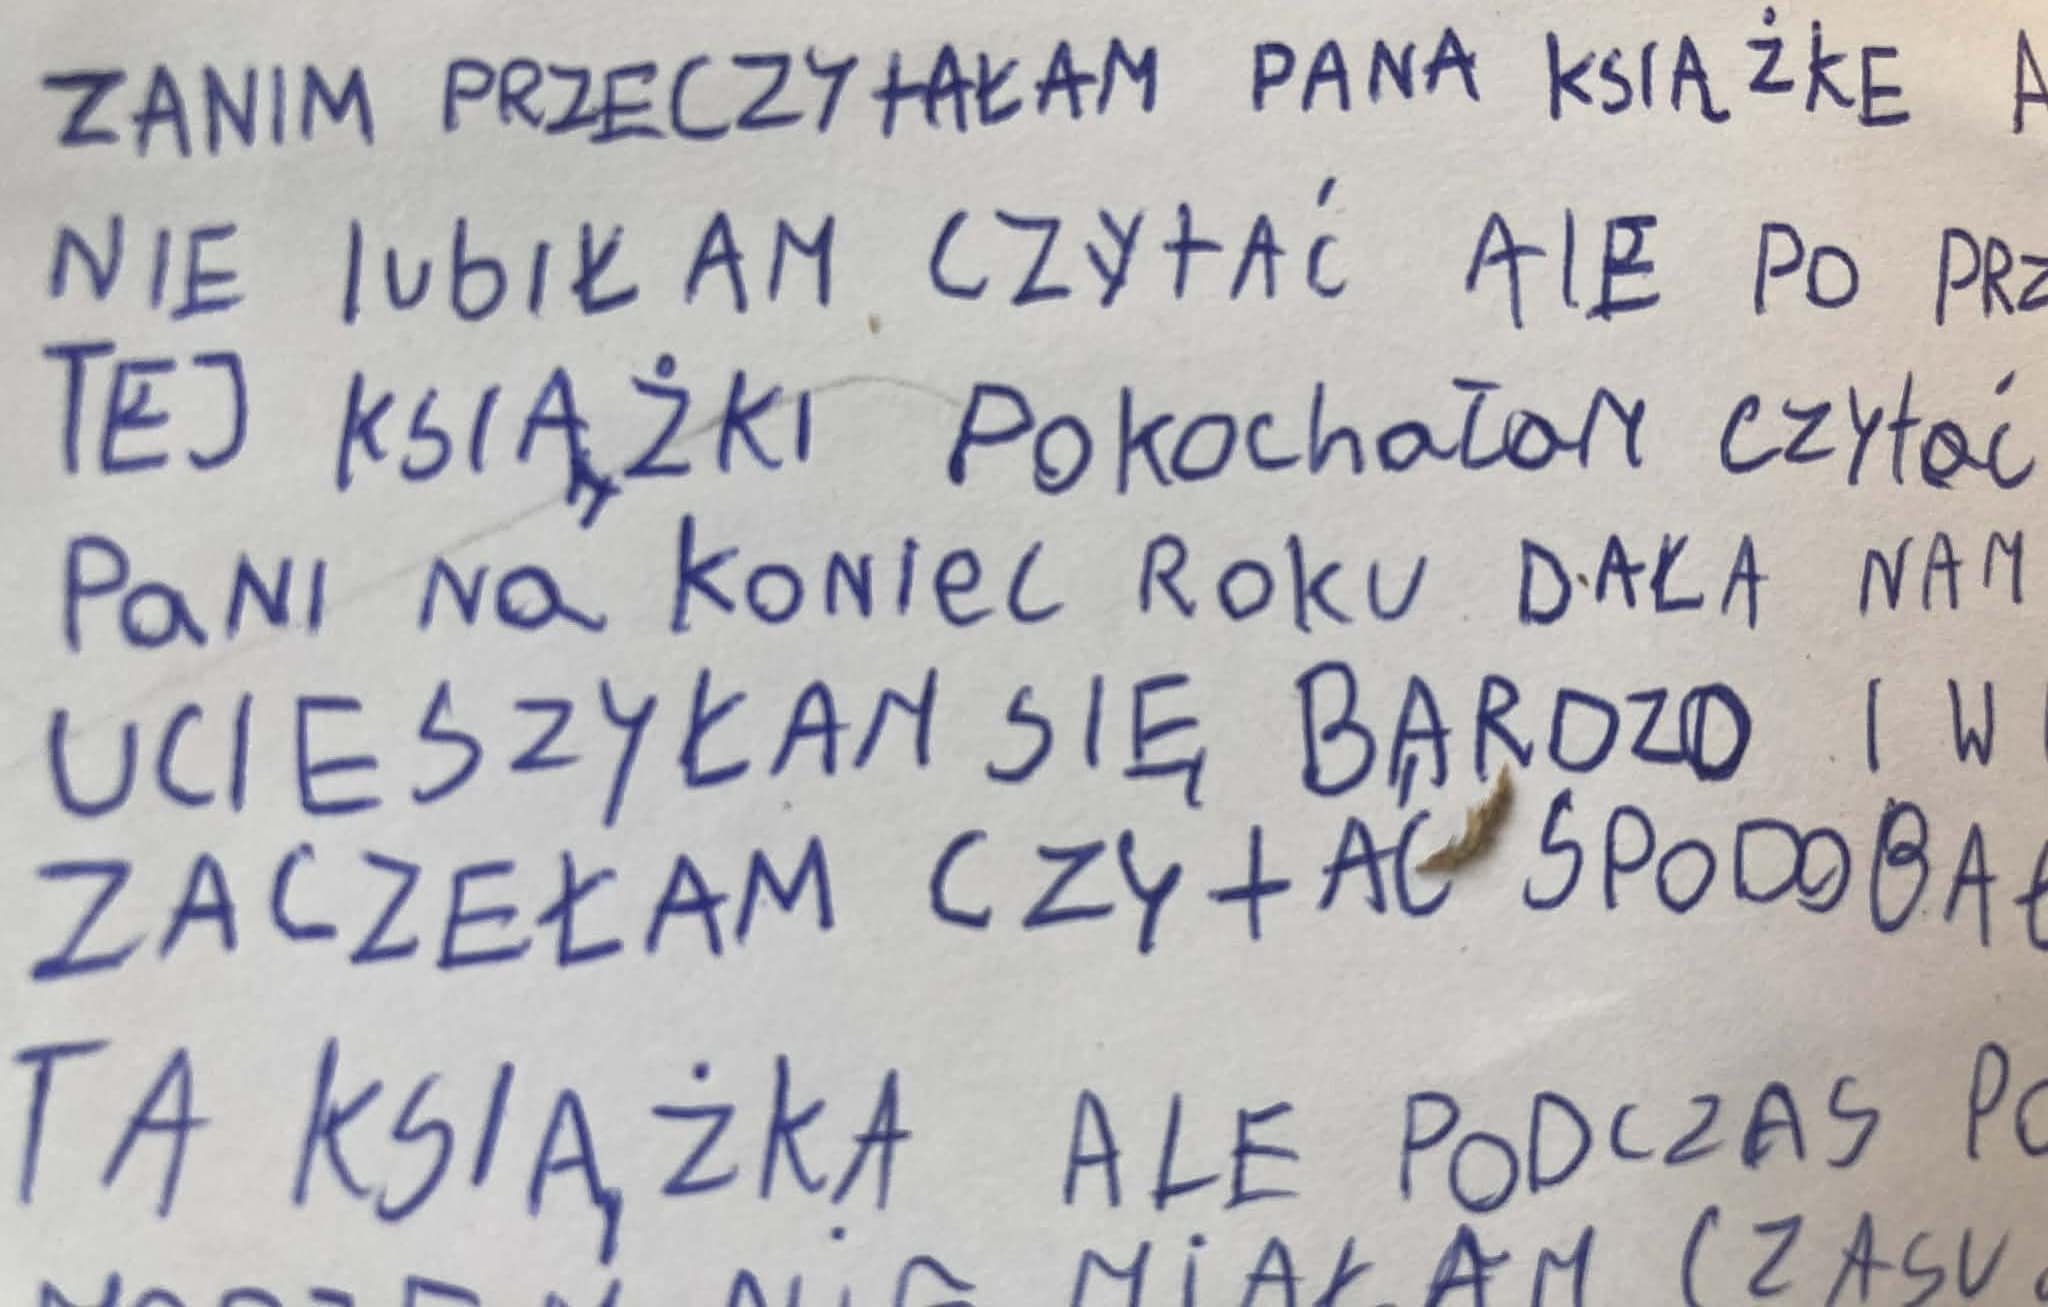 ZANIM PRZECZYTAŁAM PANA KSIĄŻKE A
NIE lubIŁAM CZYTAĆ ALE PO PRZ
TEJ KSIĄŻKI Pokochałam czytać
PaNI Na KoNIec RokU DAŁA NAM
UCIESZYŁAM SIĘ BARDZO I W
ZACZEŁAM CZYTAĆ SPODOBAŁ
TA KSIĄŻKA ALE PODCZAS PO
NIE MIAŁAM CZASU